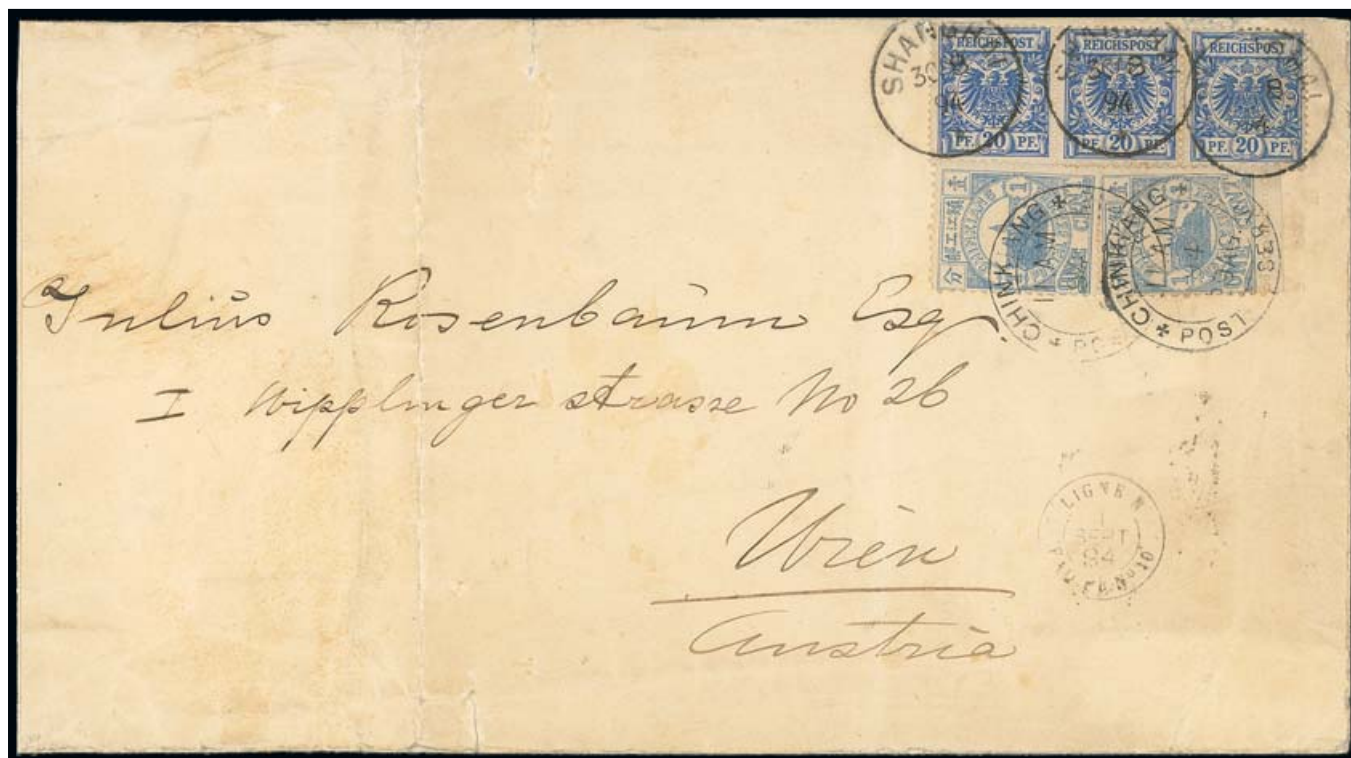 SHANGHAI
30 8
94
REICHSPOST REICHSPOST REICHSPOST
94
PF. 20 PF. PF. 20 PF. PF. 20 PF.
CHINKIANG
AM
CHINKIANG
11 AM
4
AUG.
POST
Julius Rosenbaum Esq.
I Wipplinger strasse No 26
Wien
Austria
LIGNE N
1
SEPT
94
PAQ. FR. No 10